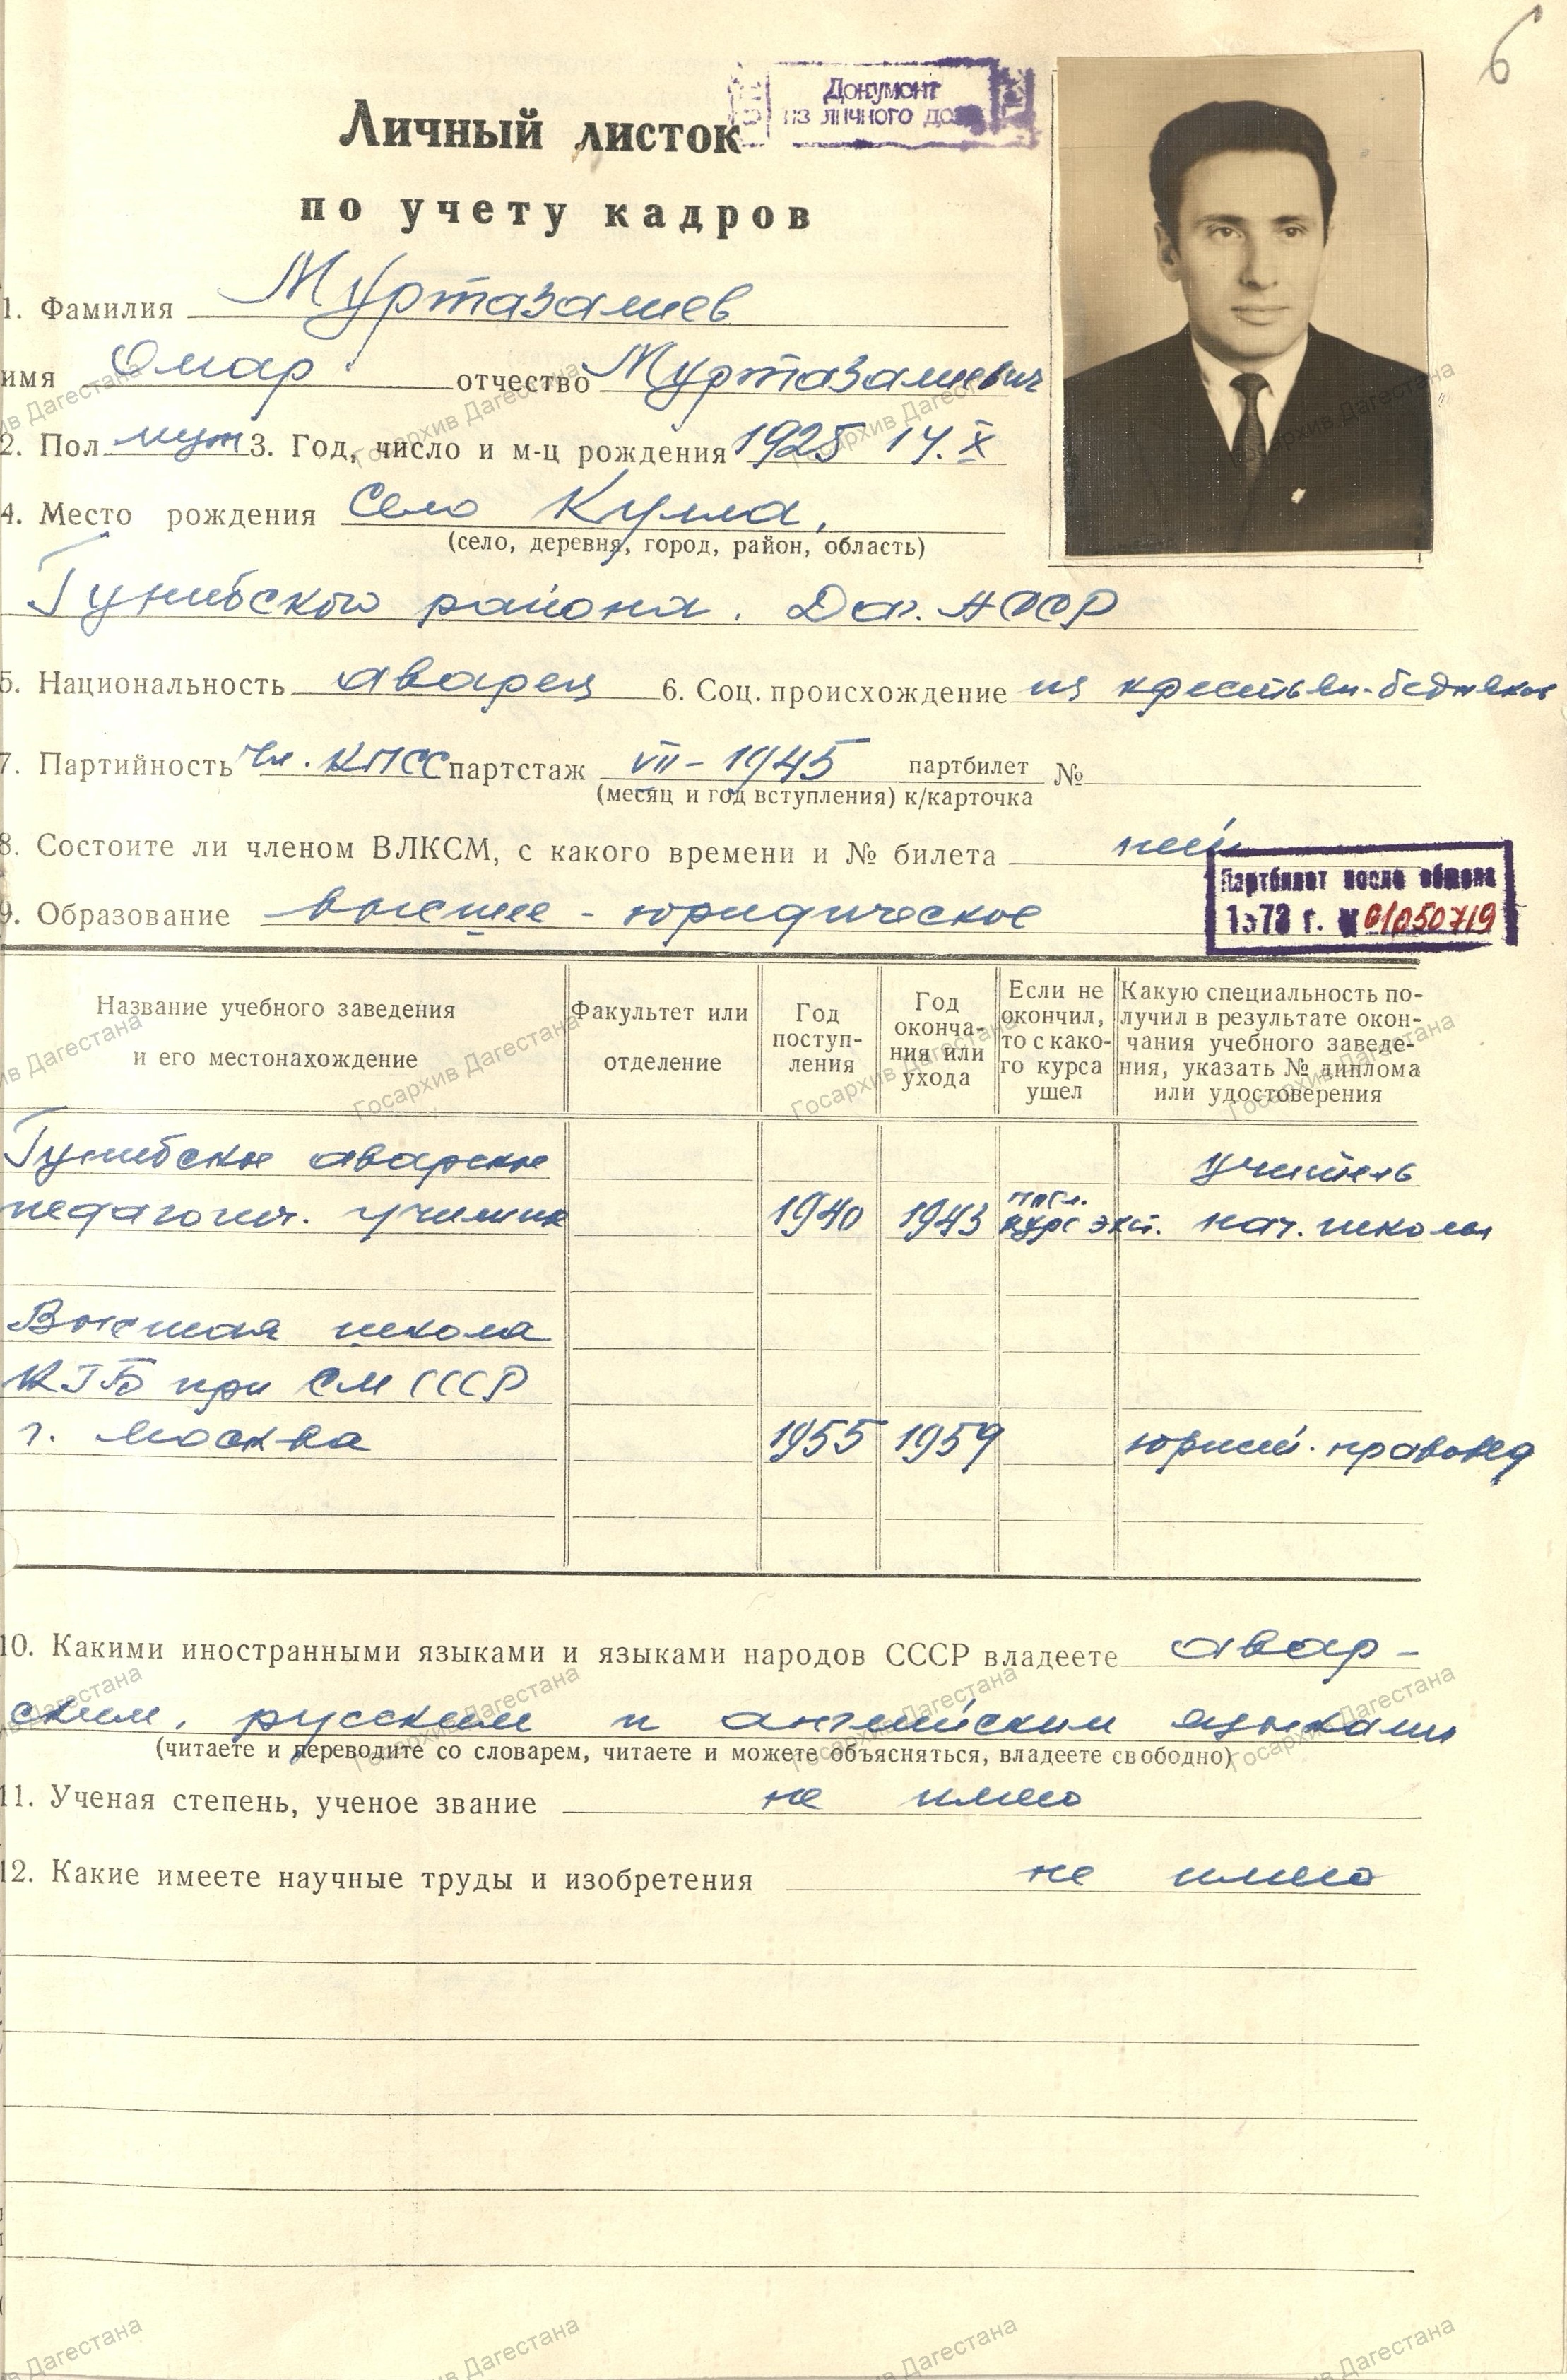 6
Документ
из личного дела
Личный листок
по учету кадров
1. Фамилия Муртазалиев
имя Омар отчество Муртазалиевич
2. Пол муж 3. Год, число и м-ц рождения 1925 14.X
4. Место рождения Село Кулла,
(село, деревня, город, район, область)
Гунибского района. Даг. АССР
5. Национальность аварец 6. Соц. происхождение из крестьян-бедняков
7. Партийность Чл. КПСС партстаж VII-1945 партбилет №
(месяц и год вступления) к/карточка
8. Состоите ли членом ВЛКСМ, с какого времени и № билета нет
Партбилет после обмена
1973 г. № 01050719
9. Образование высшее - юридическое
Название учебного заведения и его местонахождение
Факультет или отделение
Год поступ-
ления
Год
оконча-
ния или
ухода
Если не
окончил,
то с како-
го курса
ушел
Какую специальность по-
лучил в результате окон-
чания учебного заведе-
ния, указать № диплома
или удостоверения
Гунибское аварское учитель
педагогич. училище 1940 1943 курс экст. нач. школы
Высшая школа
КГБ при СМ СССР
г. Москва 1955 1959 юрист. правовед
10. Какими иностранными языками и языками народов СССР владеете авар-
ским, русским и английским языками
(читаете и переводите со словарем, читаете и можете объясняться, владеете свободно)
11. Ученая степень, ученое звание не имею
12. Какие имеете научные труды и изобретения не имею
Госархив Дагестана